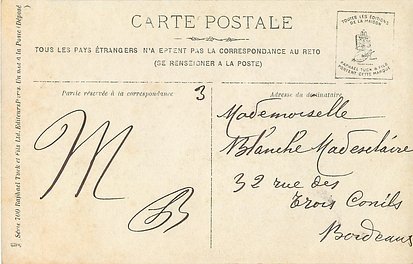 CARTE POSTALE
TOUS LES PAYS ÉTRANGERS N'A EPTENT PAS LA CORRESPONDANCE AU RETO
(SE RENSEIGNER A LA POSTE)
TOUTES LES ÉDITIONS
DE LA MAISON
RAPHAEL TUCK & FILS
PORTENT CETTE MARQUE
Partie réservée à la correspondance
3
Adresse du destinataire
M
B
Mademoiselle
Blanche
32 rue des
Trois Conils
Bordeaux
Série 700 Raphael Tuck et Fils Ltd. Editeurs Paris. Un mot à la Poste (Déposé)